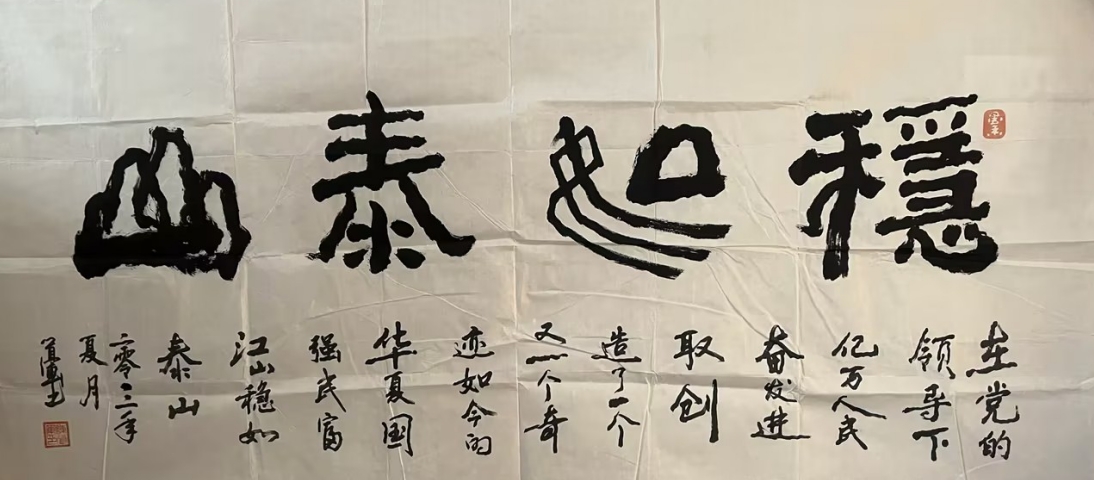 穩如泰山
在党的
领导下
亿万人民
奋发进
取创
造了一个
又一个奇
迹如今的
华夏国
强民富
江山稳如
泰山
二零二二年
夏月